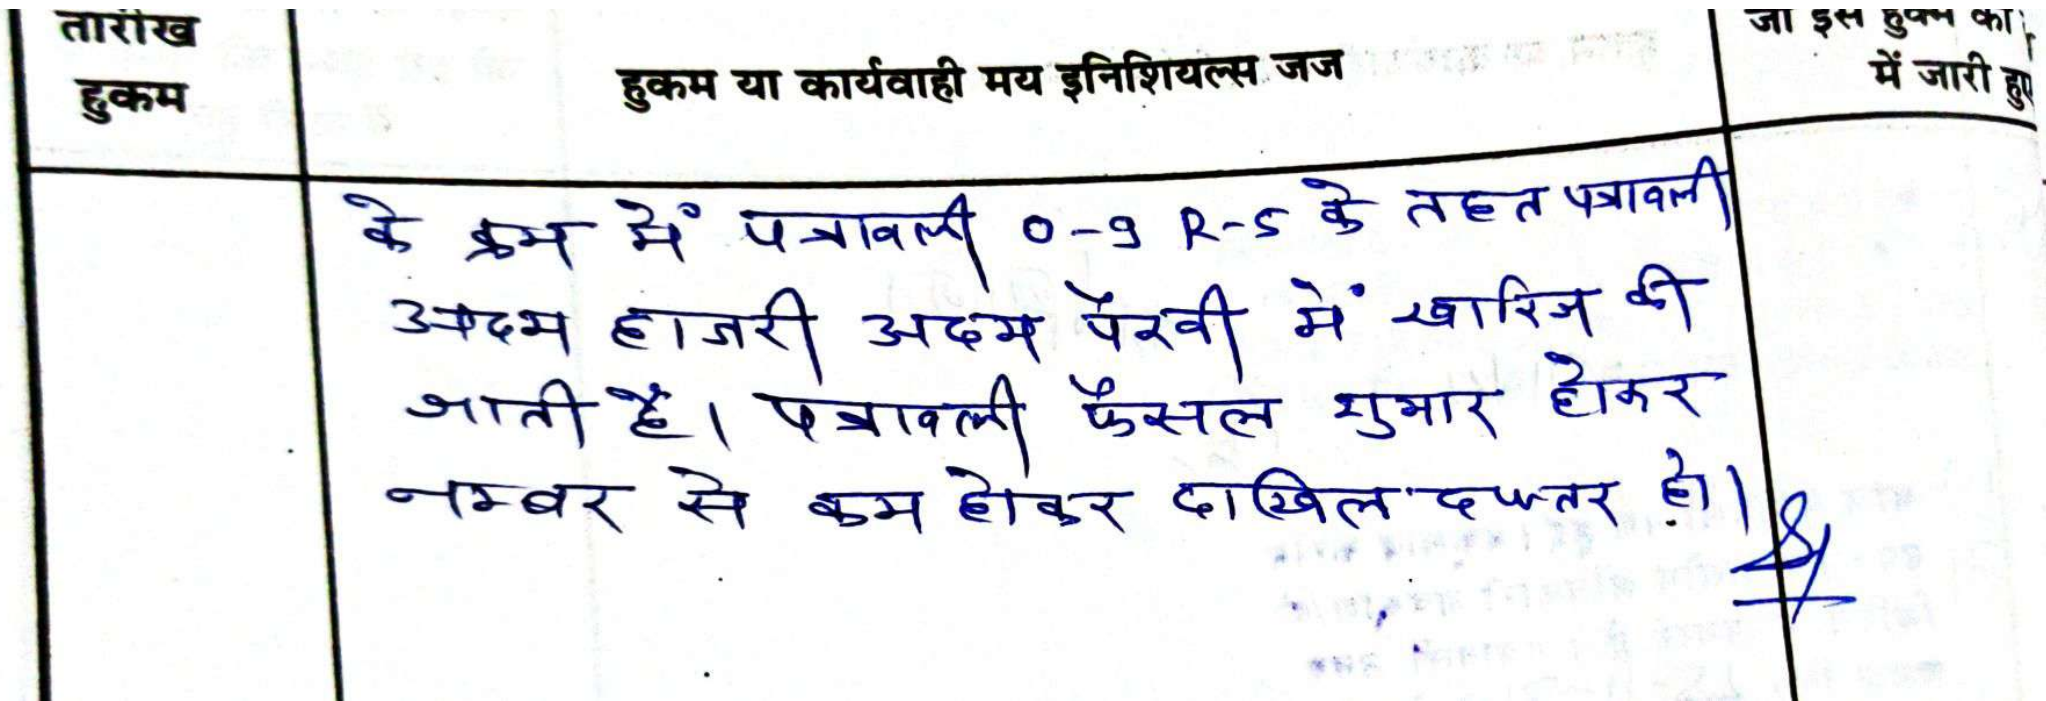 तारीख
हुकम
हुकम या कार्यवाही मय इनिशियल्स जज
जो इस हुक्म की
में जारी हुए
के क्रम में पत्रावली 0-9 R-5 के तहत पत्रावली
अदम हाजरी अदम पैरवी में खारिज की
जाती है। पत्रावली फैसल शुमार होकर
नम्बर से कम होकर दाखिल दफ्तर हो।